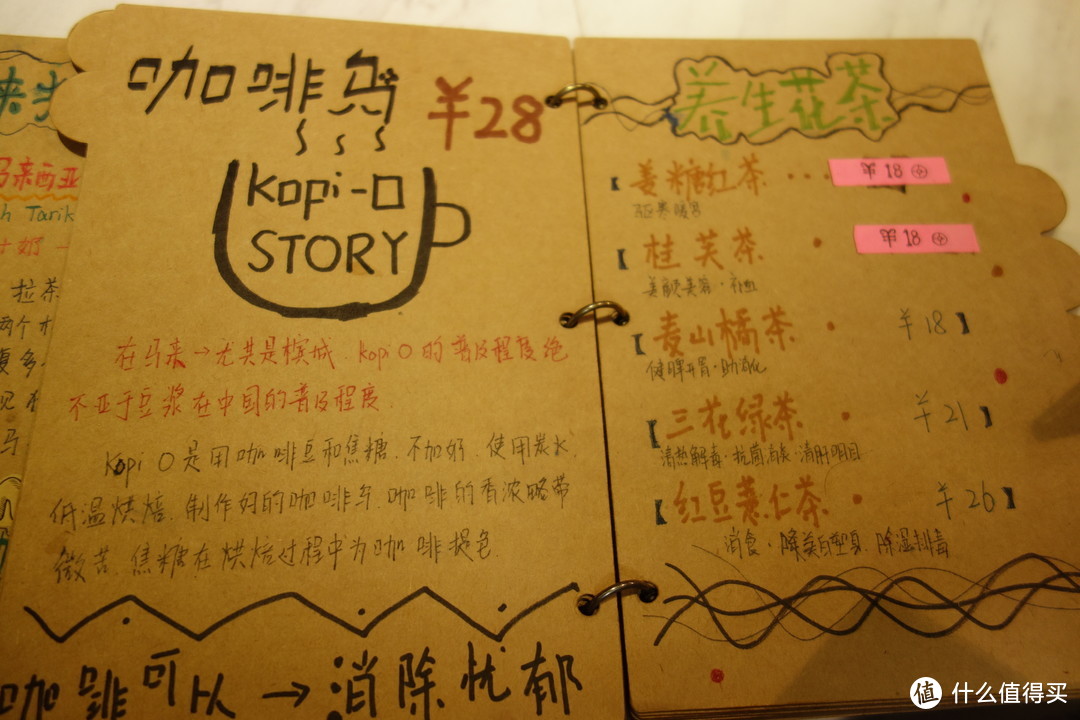 咖啡乌
¥28
Kopi-O
STORY
在马来→尤其是槟城.Kopi O的普及程度绝
不亚于豆浆在中国的普及程度.
Kopi O是用咖啡豆和焦糖.不加奶.使用炭火.
低温烘焙.制作好的咖啡乌.咖啡的香浓略带
微苦.焦糖在烘焙过程中为咖啡提色.
咖啡可以→消除忧郁
来
马来西亚
h Tarik
奶
拉茶
两个
马
养生花茶
【姜糖红茶 ... ¥18
驱寒暖胃
【桂芙茶 · ¥18
美颜美容·补血
【麦山橘茶 · ¥18】
健脾开胃·助消化
【三花绿茶 · ¥21】
清热解毒·抗菌消炎·清肝明目
【红豆薏仁茶 · ¥26】
消食·瘦美白塑身.除湿排毒
值 什么值得买